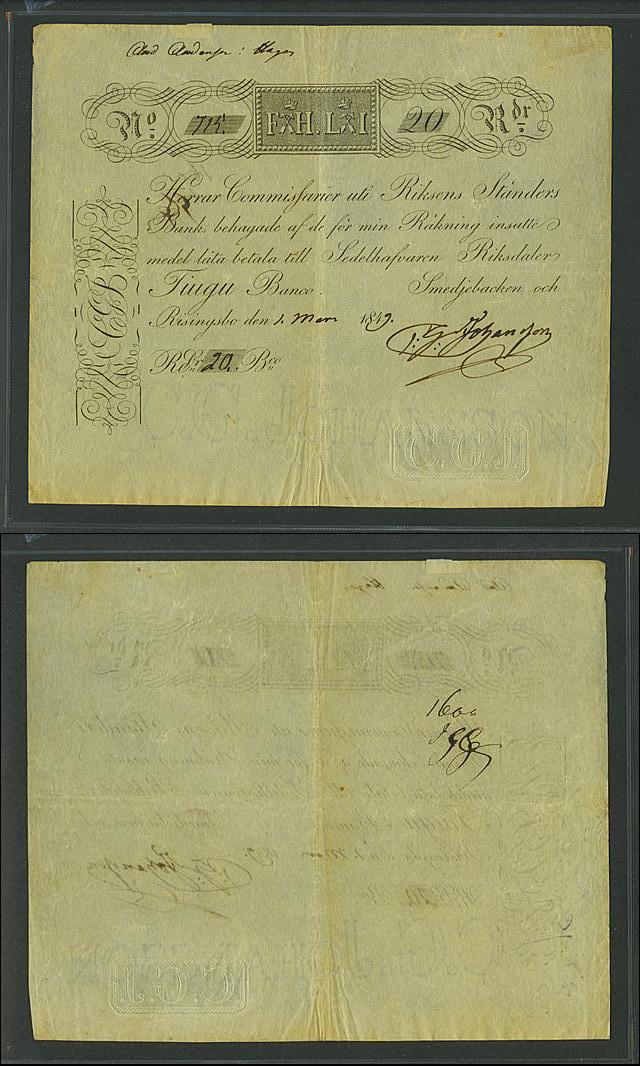 No 715. F H. L I 20 Rdr
Herrar Commissarier uti Riksens Ständers
Bank, behagade af de för min Räkning insatte
medel låta betala till Sedelhafvaren Riksdaler
Tiugu Banco. Smedjebacken och
Risingsbo den 1. Mars 1849.
C: G: Johansson
RDr 20. Bco
C.G.J.
1600